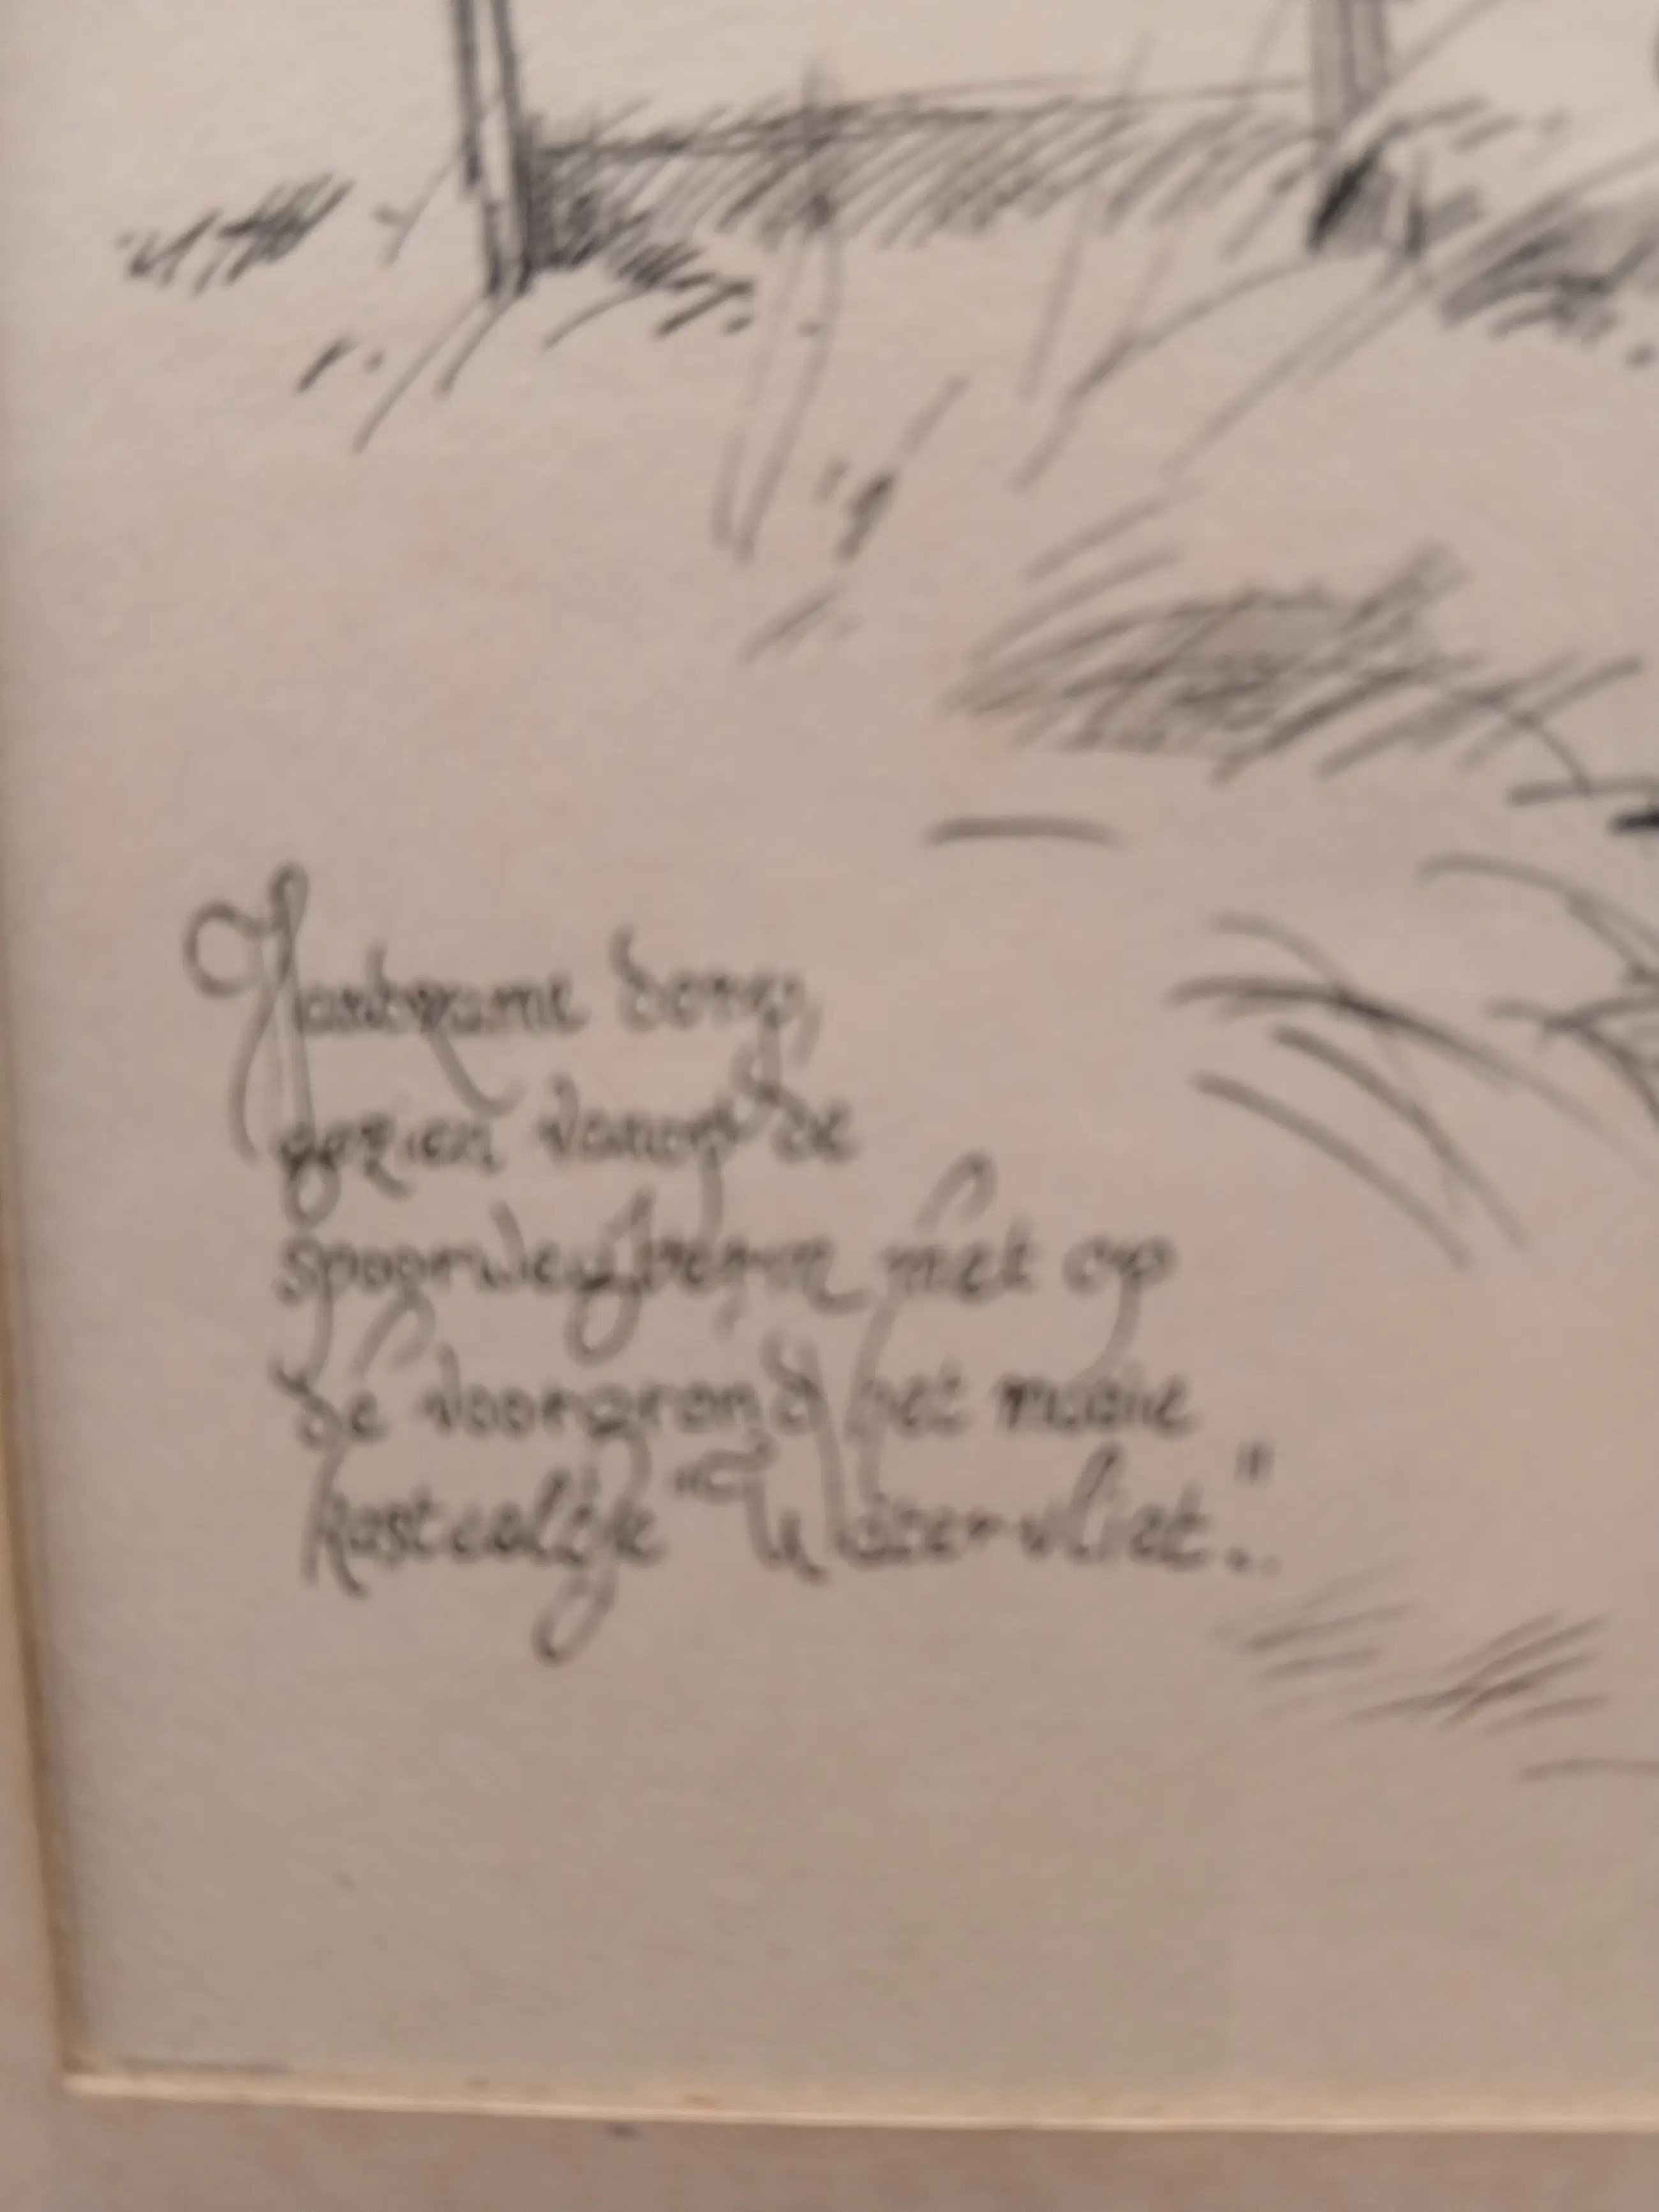 Hansbeke dorp,
gezien vanop de
spoorwegberm met op
de voorgrond het mooie
kasteeltje "Watervliet".